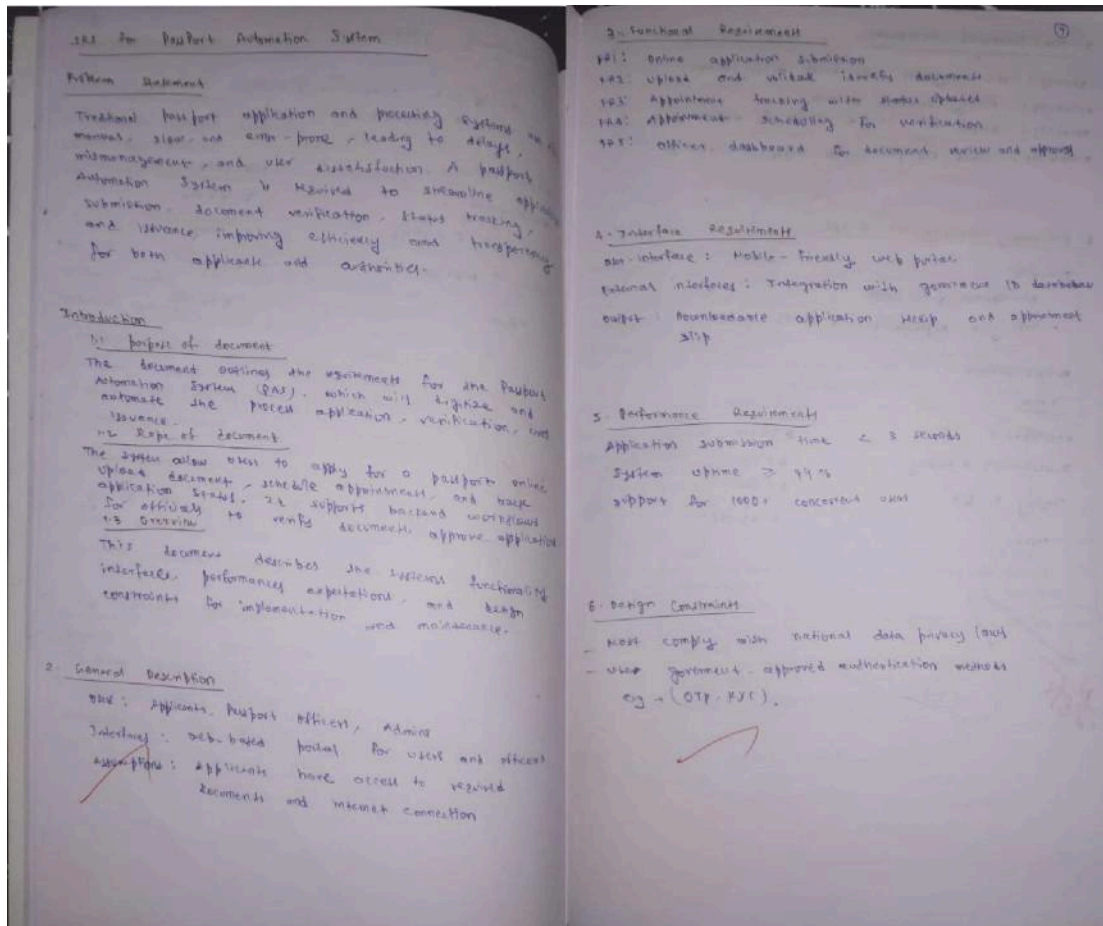 SRS for Passport Automation System
Problem Statement
Traditional passport application and processing systems are
manual, slow, and error-prone, leading to delays,
mismanagement, and user dissatisfaction. A passport
Automation System is required to streamline
submission, document verification, status tracking,
and issuance, improving efficiency and transparency
for both applicants and authorities.
Introduction
1.1 purpose of document
The document outlines the requirements for the Passport
Automation System (PAS), which will digitize and
automate the process application, verification, and
issuance.
1.2 Scope of document
The system allow users to apply for a passport online
upload document, schedule appointment, and track
application status. It supports backend workflows
for officials to verify documents, approve application
1.3 Overview
This document describes the systems functionality
interfaces, performances expectations, and design
constraints for implementation and maintenance.
2. General Description
User: Applicants, Passport officers, Admins
Interfaces: web-based portal for users and officers
Assumptions: Applicants have access to required
documents and internet connection
3. Functional Requirements
FR1: Online application submission
FR2: Upload and validate identity documents
FR3: Appointment tracking with status updates
FR4: Appointment scheduling for verification
FR5: Officer dashboard for document review and approval
4. Interface Requirements
User-interface: Mobile-friendly web portal
External interfaces: Integration with ID databases
Output: Downloadable application and appointment
slip
5. Performance Requirements
Application submission time < 3 seconds
System uptime ≥ 99%
support for 1000+ concurrent users
6. Design Constraints
- Must comply with national data privacy laws
- Uses goverment-approved authentication methods
eg → (OTP, KYC).